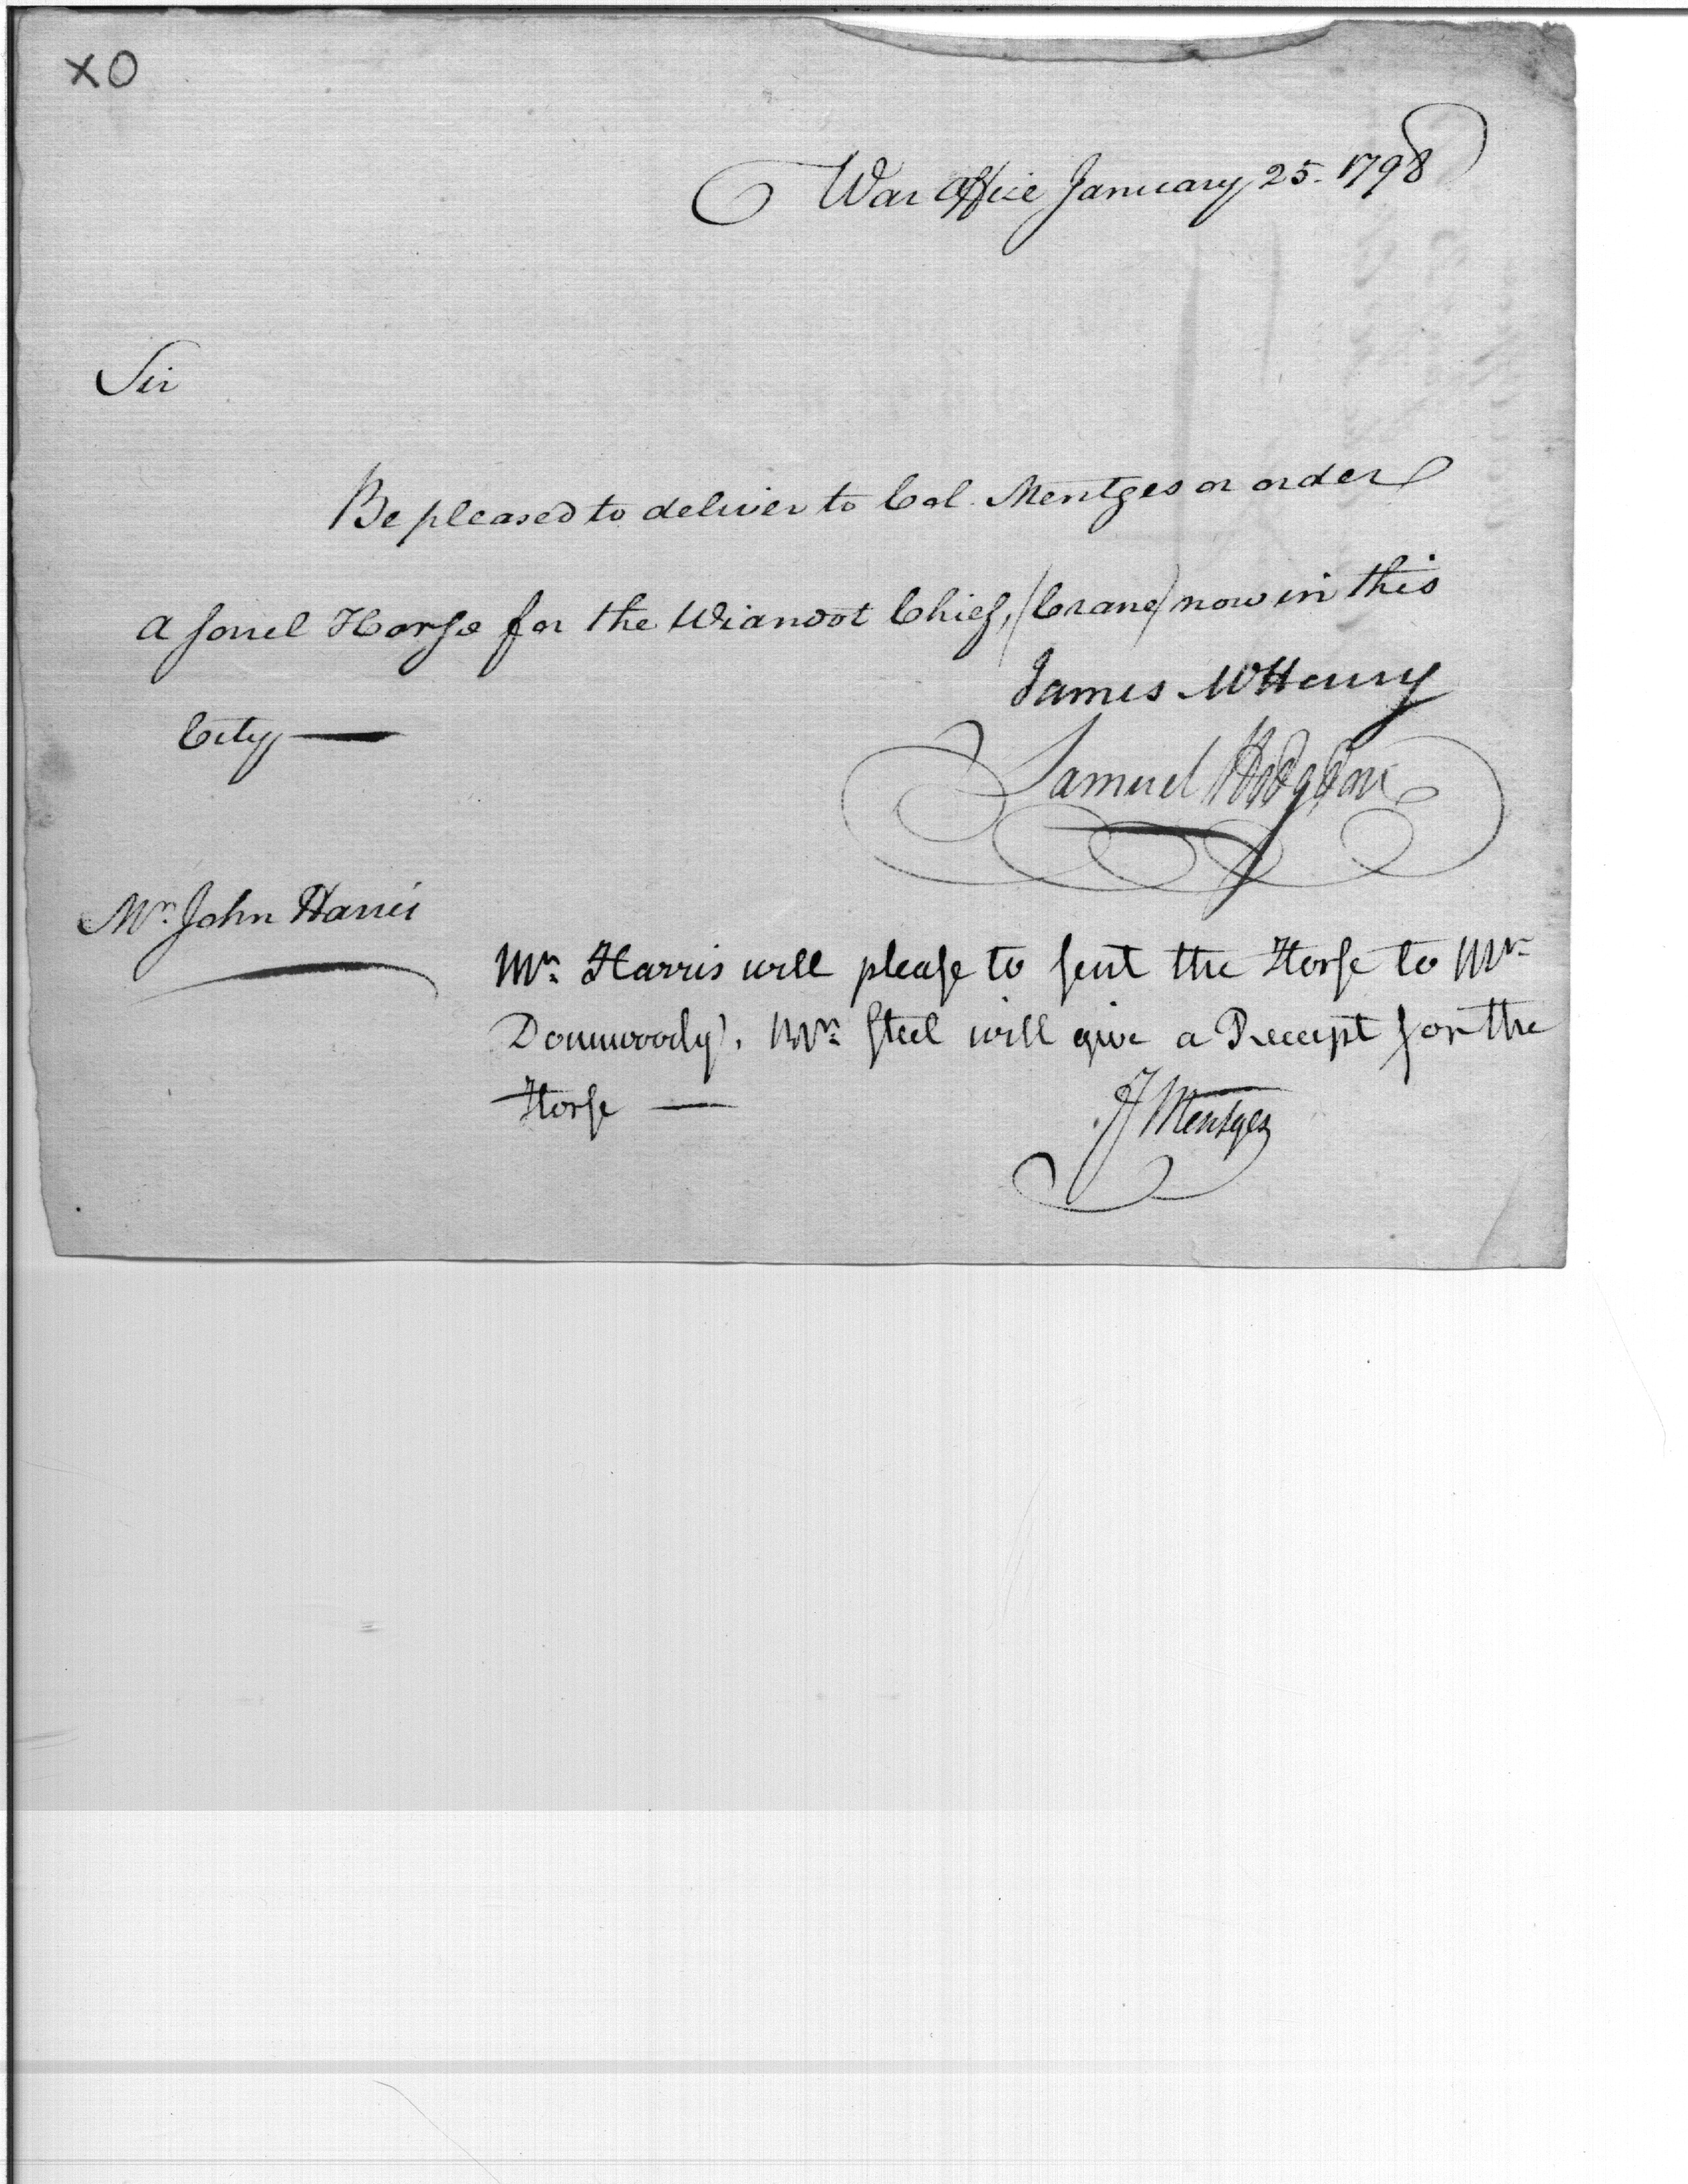 XO
War Office January 25. 1798
Sir
Be pleased to deliver to Col. Mentges or order
a sorrel Horse for the Wiandot Chief, (Crane) now in this
City —
James McHenry
Samuel Hodgdon
Mr. John Harris
Mr. Harris will please to sent the Horse to Mr.
Mr. Steel will give a Receipt for the
Horse —
F Mentges